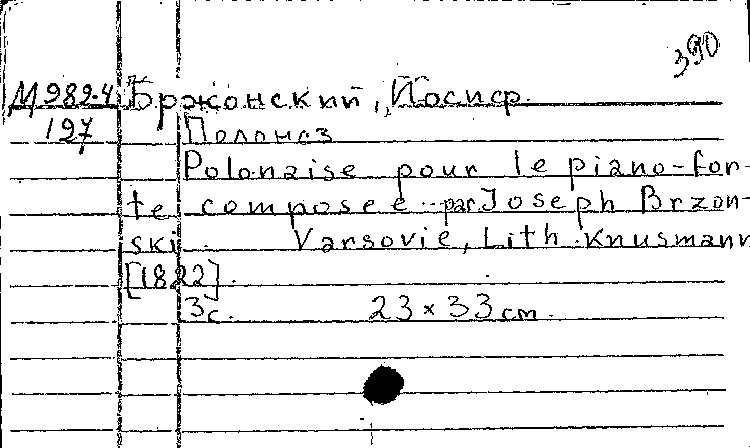 390
М 982-4 Бржонский, Йосиф.
197 Полонез
Polonaise pour le piano-for-
te composeé par Joseph Brzon-
ski. Varsovie, Lith. Knusmann
[1822].
3с. 23 x 33 cm.